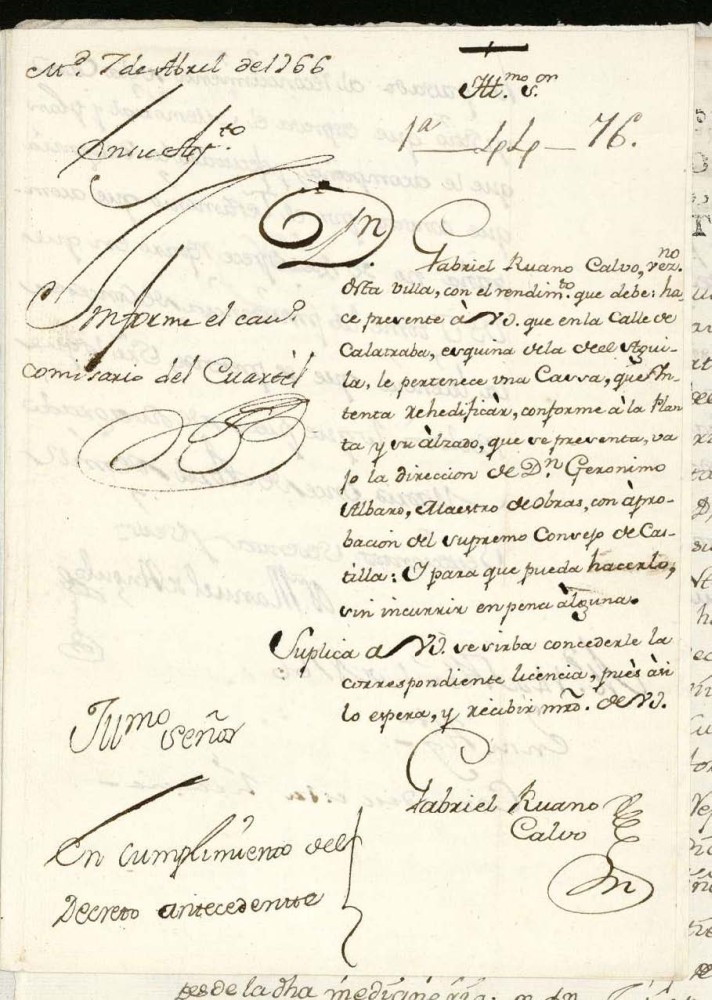 Md. 7 de Abril de 1766
Illmo. Sor.
En su Aytto.
1a — 44 — 76.
Dn. Gabriel Ruano Calvo, vezno.
Informe el cavo.
comisario del Cuartèl
desta villa, con el rendimto. que debe: ha
ce presente à VS. que en la Calle de
Calatraba, esquina dela deel Agui-
la, le pertenece vna Cassa, que In-
tenta Rehedificàr, conforme à la Plan
ta y su àlzado, que se presenta, va
jo la direccion de Dn. Geronimo
Albaro, Maestro de obras, con àpro-
bacion del supremo Consejo de Cas-
tilla: Y para que pueda hacerlo,
sin incurrir en pena àlguna.
Suplica a VS. se sirba concederle la
correspondiente licencia, pues àsi
lo espera, y recibir mrd. de VS.
Gabriel Ruano
Calvo
Illmo
señor
En cumplimiento del
Decreto antecedente
des de la dha medianeria: